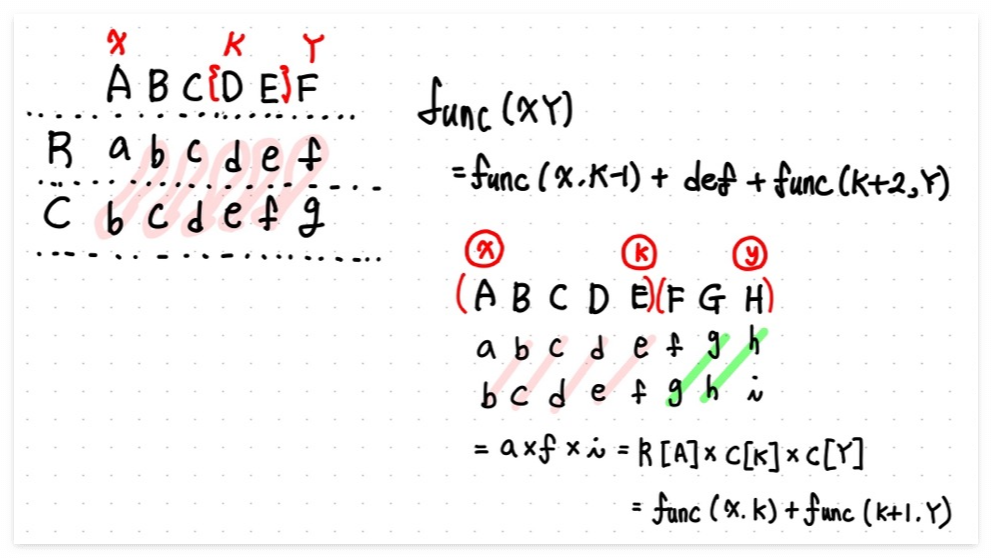 X K Y
A B C {D E} F
R a b c d e f
C b c d e f g
func (XY)
= func (X. K-1) + def + func (K+2, Y)
x k y
(A B C D E)(F G H)
a b c d e f g h
b c d e f g h i
= a x f x i = R [A] x C[K] x C[Y]
= func (X. k) + func (k+1. Y)